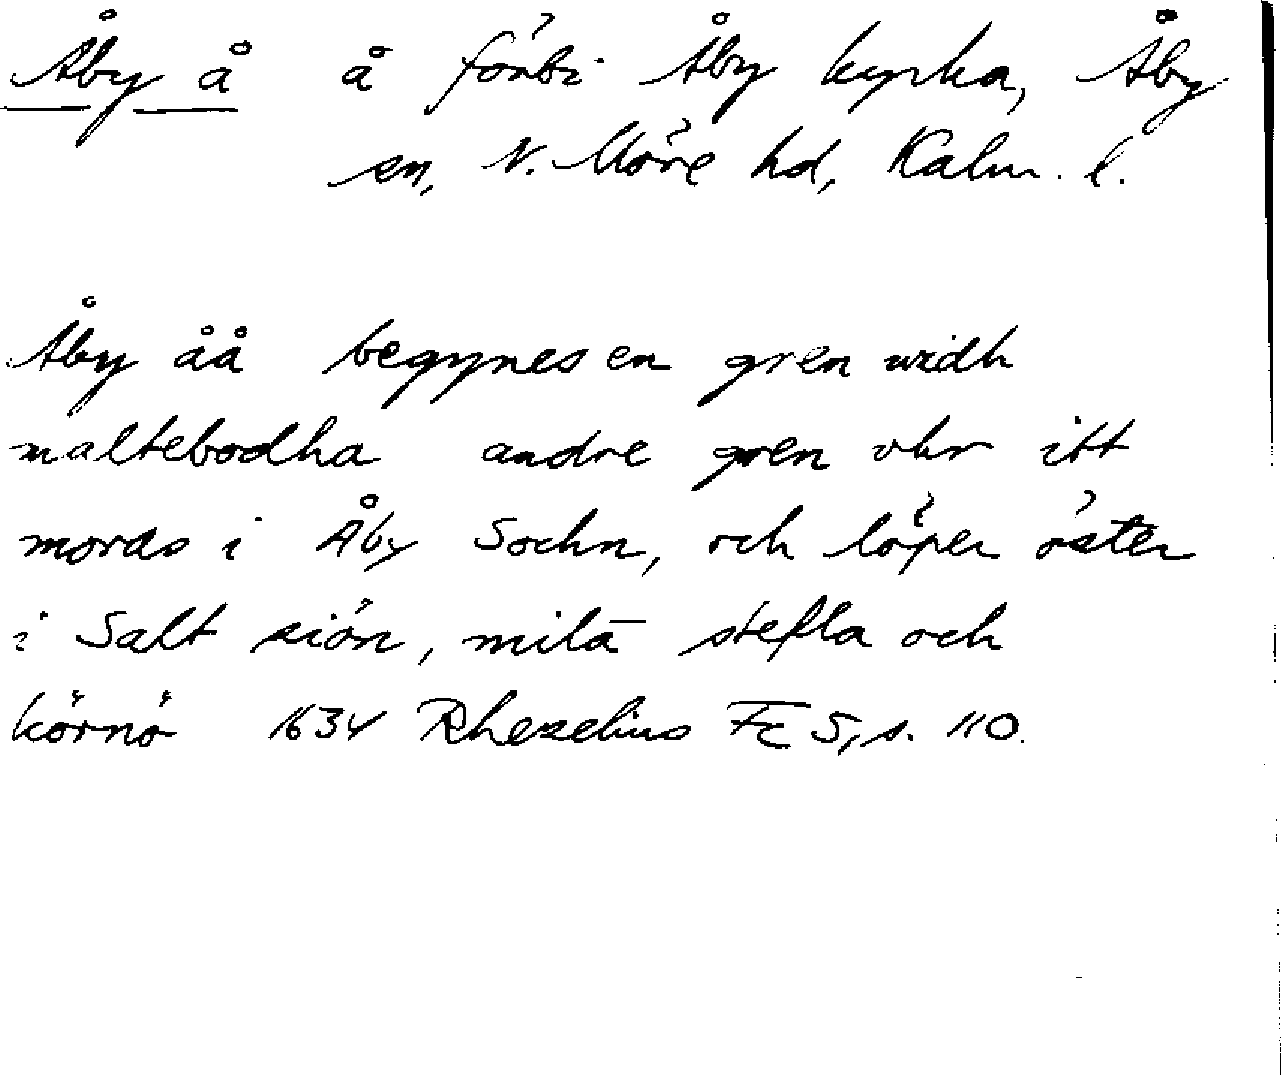 Åby å å förbi Åby kyrka, Åby
sn, N. Möre hd, Kalm. l.
Åby åå begynes en gren widh
maltebodha andre gren vhr itt
morås i Åby Sochn, och löper öster
i Salt siön, mila stefla och
körnö 1634 Rhezelius FC 5, s. 110.